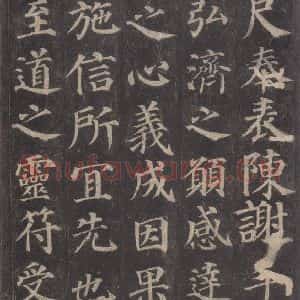 尺奉表陳謝
弘濟之願感達
之心義成因果
施信所宜先也
至道之靈符受